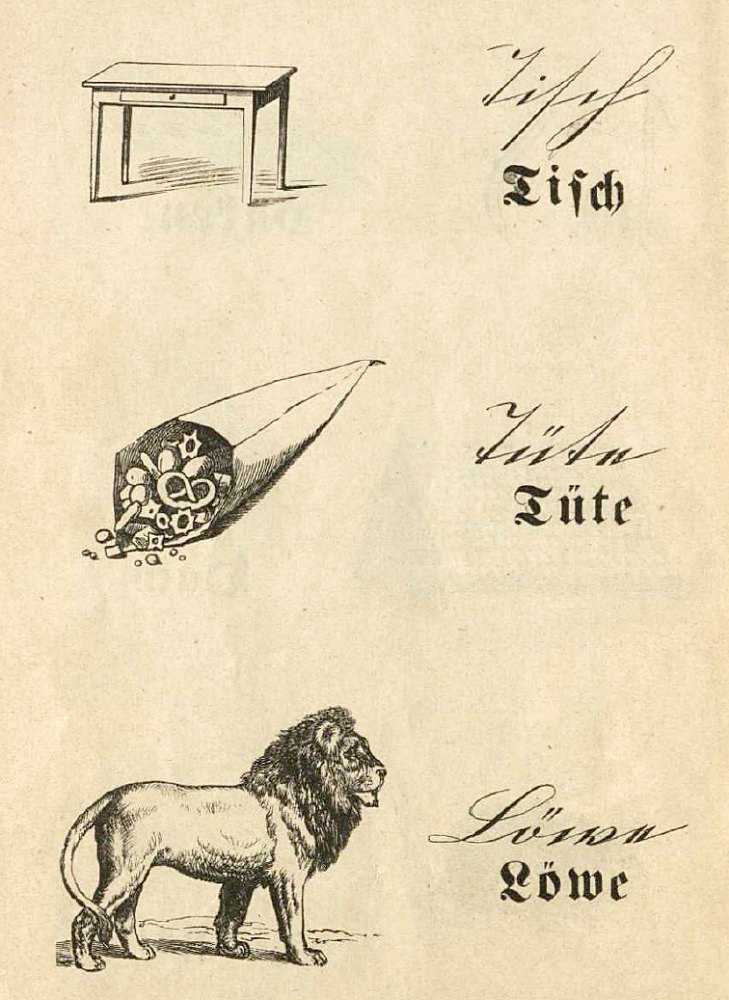 Tisch
Tisch
Tüte
Tüte
Löwe
Löwe